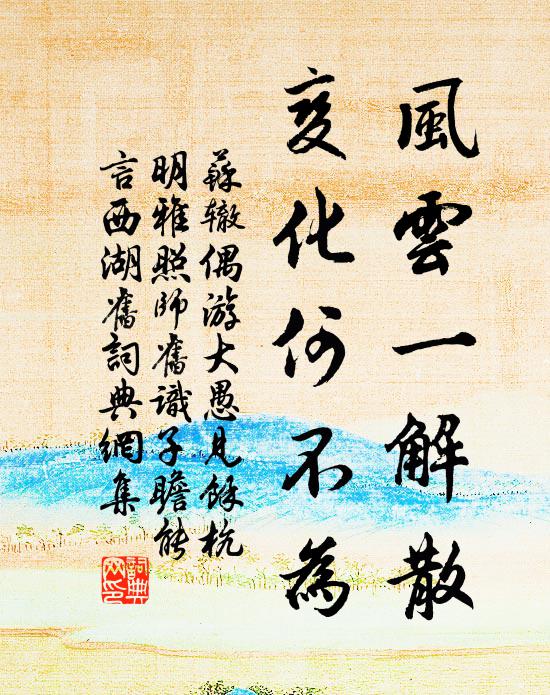 風雲一解散
變化何不為
蘇轍偶游大愚見餘杭
明雅照師舊識子瞻能
言西湖舊詞典網集
詞典
网印